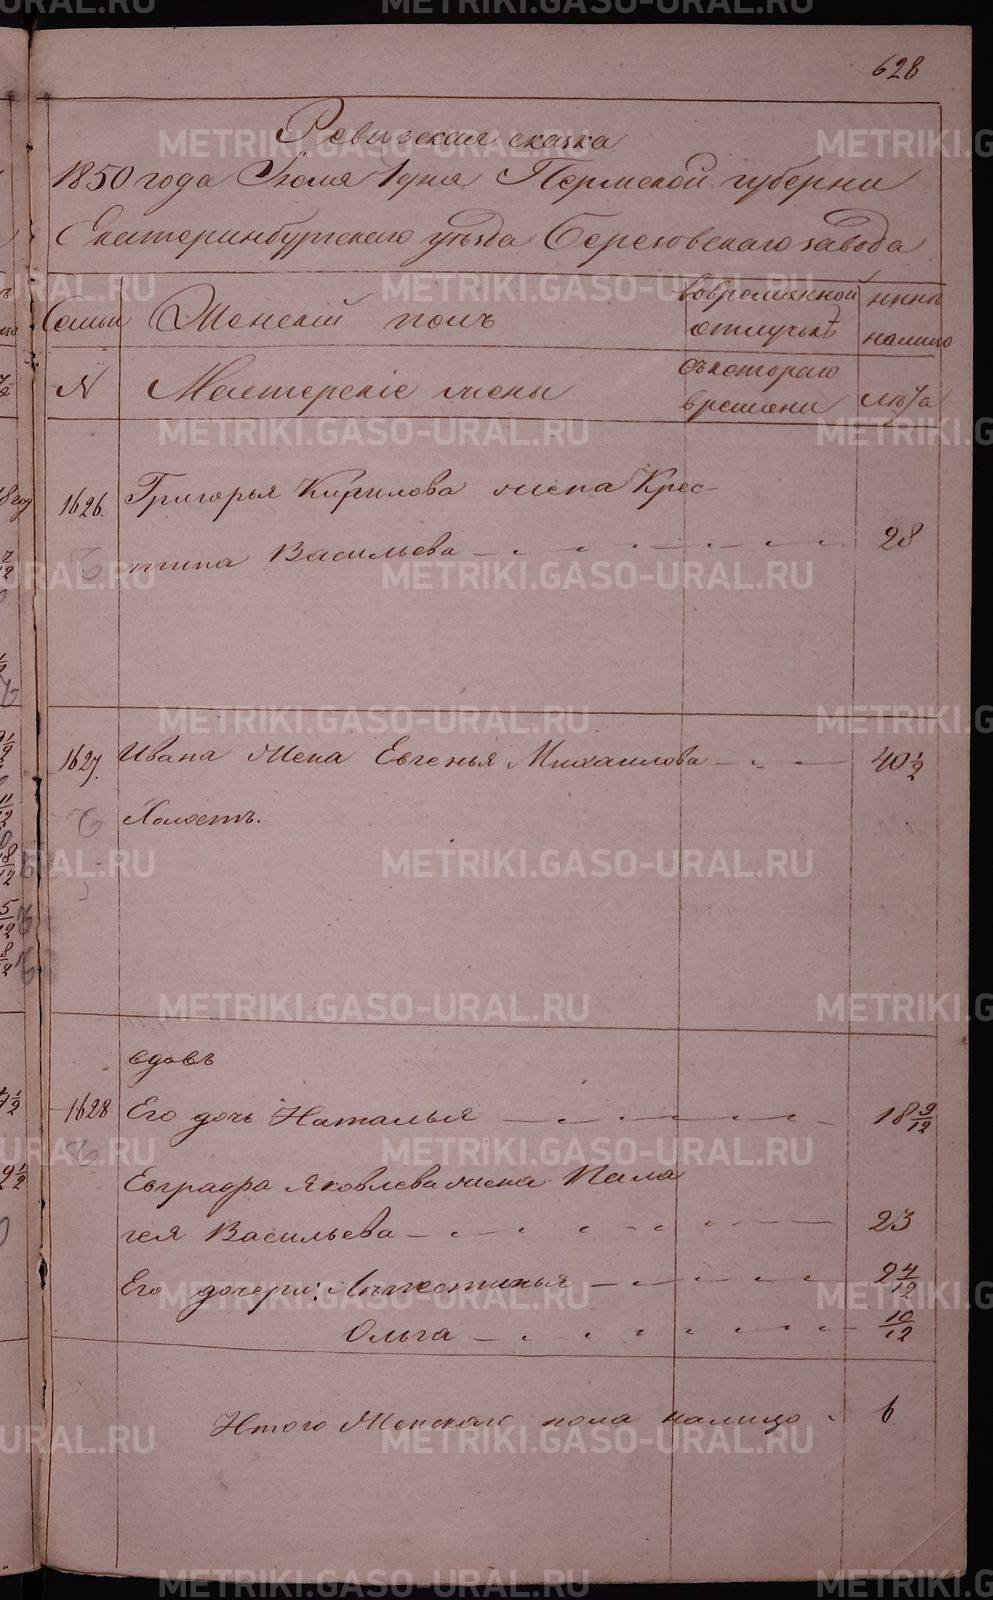 628
Ревизская сказка
1850 года Іюля 1 дня Пермской губерни
Екатеринбургскаго уѣзда Березовскаго завода
Семьи Женскій полъ вовременной отлучкѣ нынѣ налицо
N Мастерскіе жены съкотораго времени лѣта
1626. Григорья Кирилова жена Крес-
тина Васильева 28
1627. Ивана жена Евгенья Михаилова 40 1/2
Холостъ.
вдовъ
1628 Его дочь Наталья 18 9/12
Евграфа Яковлева жена Пала
гея Васильева 23
Его дочери: 2 4/12
Ольга 10/12
Итого Женскаго пола налицо 6
METRIKI.GASO-URAL.RU